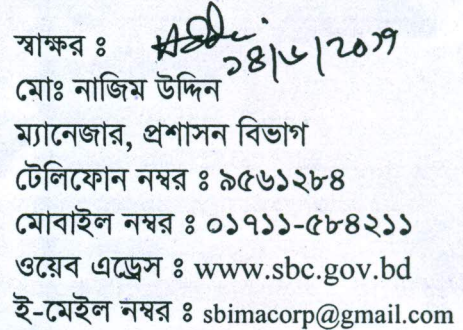 স্বাক্ষর ঃ
১৪/৬/২০১৭
মোঃ নাজিম উদ্দিন
ম্যানেজার, প্রশাসন বিভাগ
টেলিফোন নম্বর ঃ ৯৫৬১২৮৪
মোবাইল নম্বর ঃ ০১৭১১-৫৮৪২১১
ওয়েব এড্রেস ঃ www.sbc.gov.bd
ই-মেইল নম্বর ঃ sbimacorp@gmail.com